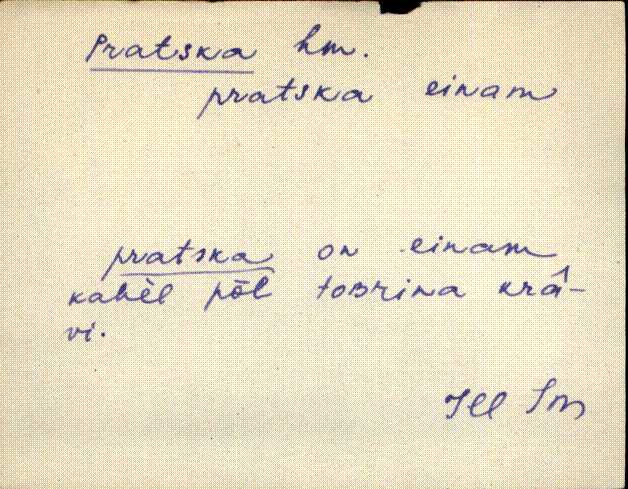 Pratska hm.
pratska einam
pratska on einam
kahèl pōl tobrina krâ-
vi.
Jll